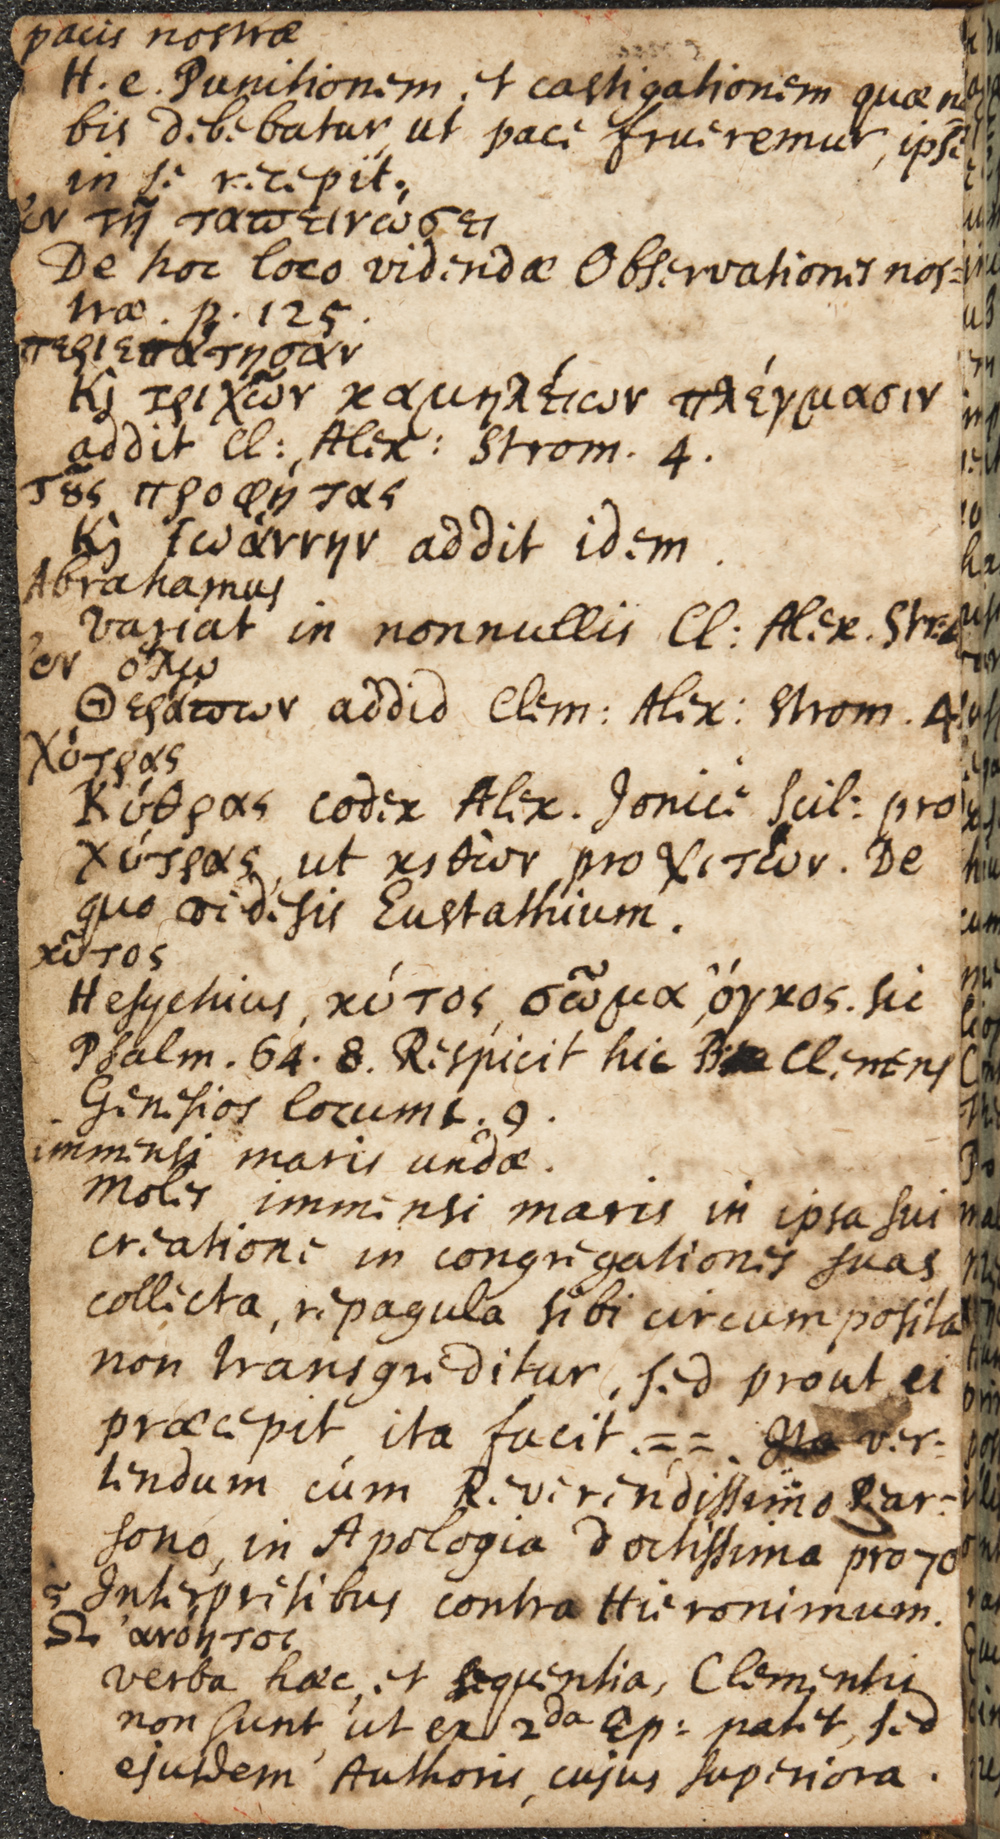 pacis nostræ
H. e. Punitionem et castigationem quæ no
bis debebatur, ut pace frueremur, ipse
in se recepit.
ἐν τῇ ταπεινώσει
De hoc loco videndæ Observationes nos=
træ. p. 125.
περιεπάτησαν
Κὶ τριχῶν καμηλείων πλέγμασιν
addit Cl: Alex: Strom. 4.
τȣ̀ς προφήτας
Κὶ Ἰωάννην addit idem.
Abrahamus
variat in nonnullis Cl: Alex. Strom
ἐν οἴκῳ
Θεράπων addid Clem: Alex: Strom. 4.
χύτρας
Κύθρας codex Alex. Jonice scil: pro
χύτρας, ut κιθὼν pro χιτών. De
quo videsis Eustathium.
κῦτος
Hesychius, κύτος, σῶμα, ὄγκος. sic
Psalm. 64. 8. Respicit hic Clemens
Genesios locum 1. 9.
immensi maris undæ.
Moles immensi maris in ipsa sui
creatione in congregationes suas
collecta, repagula sibi circumposita
non transgreditur, sed prout ei
præcepit ita facit. == Ita ver=
tendum cum Reverendissimo Pear=
sono, in Apologia doctissima pro 70
Interpretibus contra Hieronimum.
Ὦ ἀνόητοι
verba hæc, et sequentia, Clementis
non sunt, ut ex 2da Ep: patet, sed
ejusdem Authoris, cujus superiora.